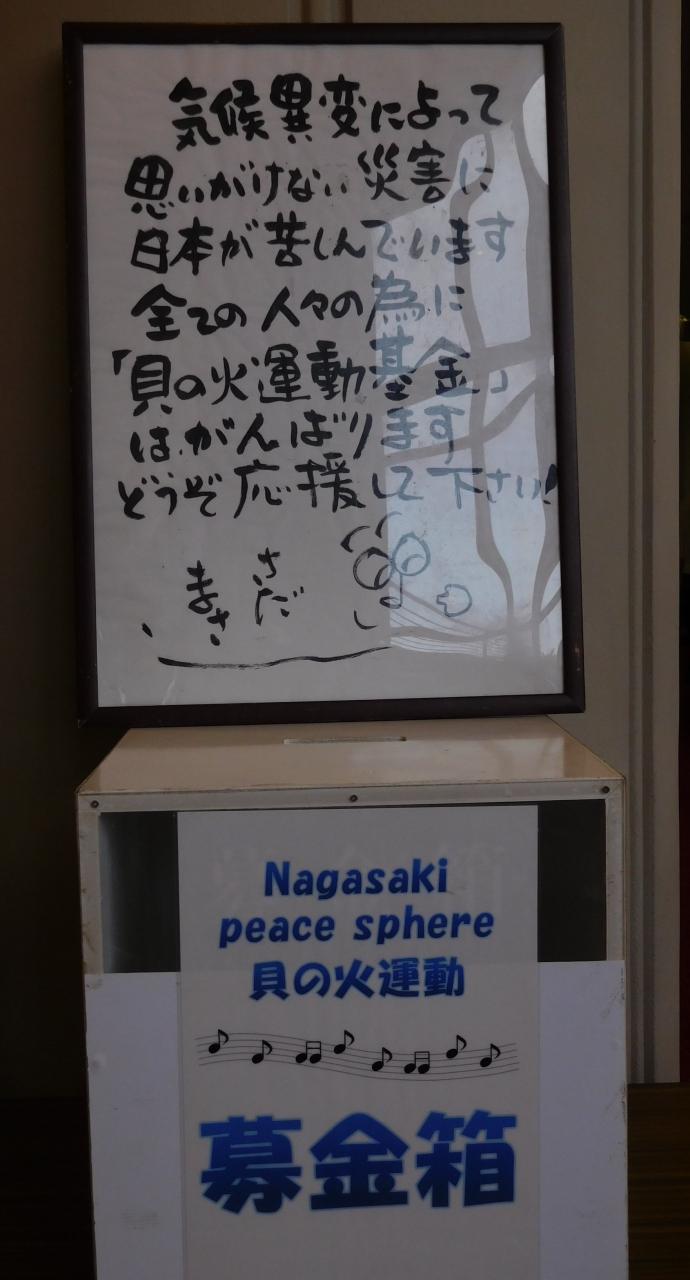 気候異変によって
思いがけない災害に
日本が苦しんでいます
全ての人々の為に
「貝の火運動基金」
は、がんばります
どうぞ応援して下さい!
さだ
まさし
Nagasaki
peace sphere
貝の火運動
募金箱